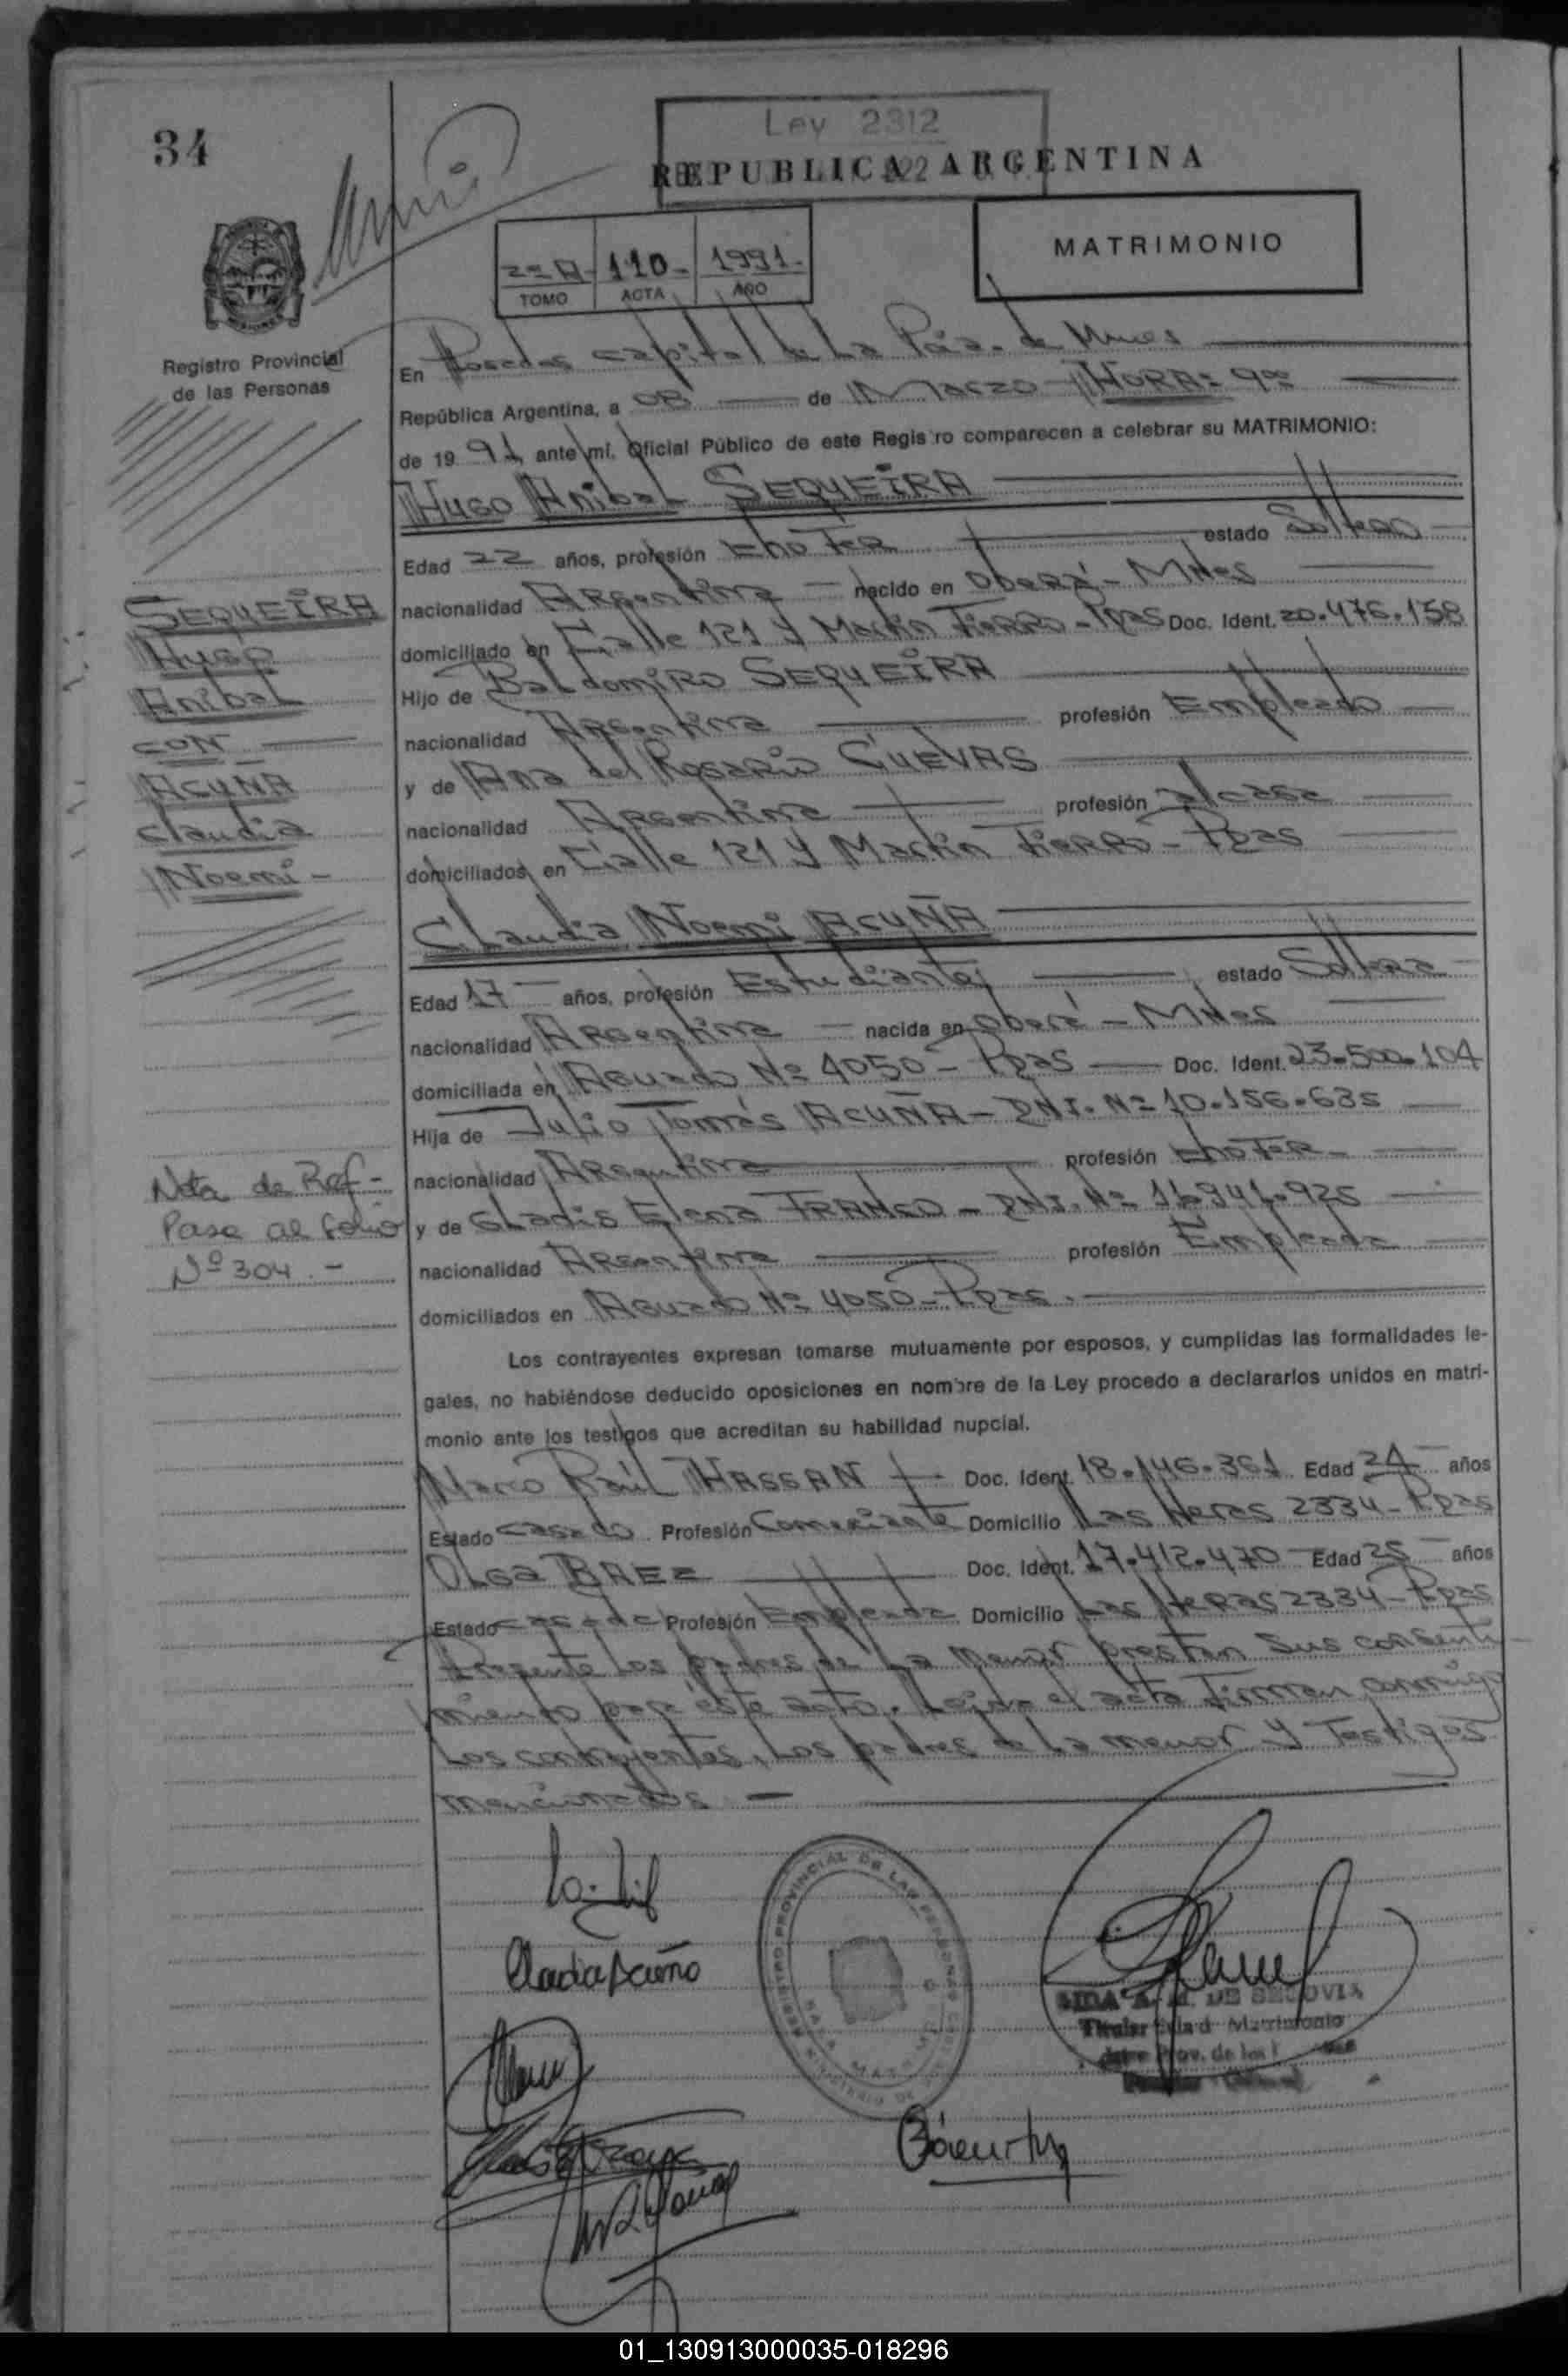 34
Ley 2312
REPUBLICA ARGENTINA
MATRIMONIO
2º A- 110- 1991-
TOMO ACTA AÑO
Registro Provincial
de las Personas
En Posadas capital de La Pcia. de Mnes
República Argentina, a 08 de Marzo - HORA: 9⁰⁰
de 1991 ante mí, Oficial Público de este Registro comparecen a celebrar su MATRIMONIO:
Hugo Anibal SEQUEIRA
Edad 22 años, profesión choFER estado Soltero
nacionalidad Argentina nacido en Oberá - Mnes
domiciliado en Calle 121 y Martín Fierro - Pdas Doc. Ident. 20.476.158
Hijo de Baldomiro SEQUEIRA
nacionalidad Argentina profesión Empleado
y de Ana del Rosario CUEVAS
nacionalidad Argentina profesión
domiciliados en Calle 121 y Martín Fierro - Pdas
Claudia Noemi ACUÑA
Edad 17 años, profesión Estudiante estado Soltera
nacionalidad Argentina - nacida en Oberá - Mnes
domiciliada en Aguado Nº 4050 - Pdas Doc. Ident. 23.500.104
Hija de Julio Tomás ACUÑA - DNI. Nº 10.156.635
nacionalidad Argentina profesión choFER
y de Gladis Elena FRANCO - DNI. Nº 11.941.925
nacionalidad Argentina profesión Empleada
domiciliados en Aguado Nº 4050 - Pdas.
Los contrayentes expresan tomarse mutuamente por esposos, y cumplidas las formalidades le-
gales, no habiéndose deducido oposiciones en nombre de la Ley procedo a declararlos unidos en matri-
monio ante los testigos que acreditan su habilidad nupcial.
Marco Raúl HASSAN Doc. Ident. 18.146.361 Edad 24 años
Estado casado Profesión Comerciante Domicilio Las Heras 2334 - Pdas
Olga BAEZ Doc. Ident. 17.412.470 Edad 25 años
Estado casada Profesión Empleada Domicilio Las Heras 2334 - Pdas
Presente Los padres de La menor prestan sus consenti-
miento para este acto. Leida el acta Firman conmigo
Los contrayentes, Los padres de La menor y Testigos
mencionados -
SEQUEIRA
Hugo
Anibal
CON
ACUÑA
Claudia
Noemi -
Nota de Ref -
Pase al folio
Nº 304. -
Claudia Acuña
REGISTRO PROVINCIAL DE LAS PERSONAS
A. M. DE SEGOVIA
Titular Matrimonio
Prov. de las
01_130913000035-018296